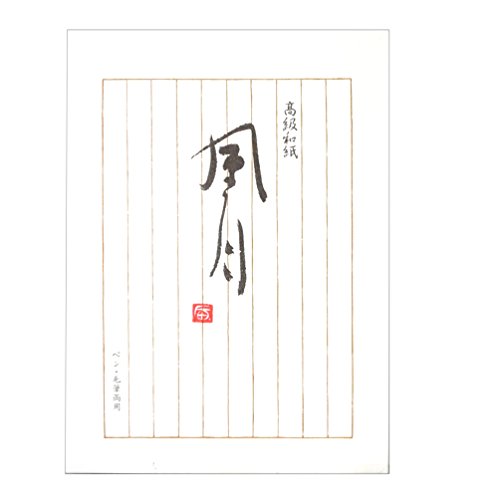 高級和紙
風月
ペン・毛筆両用